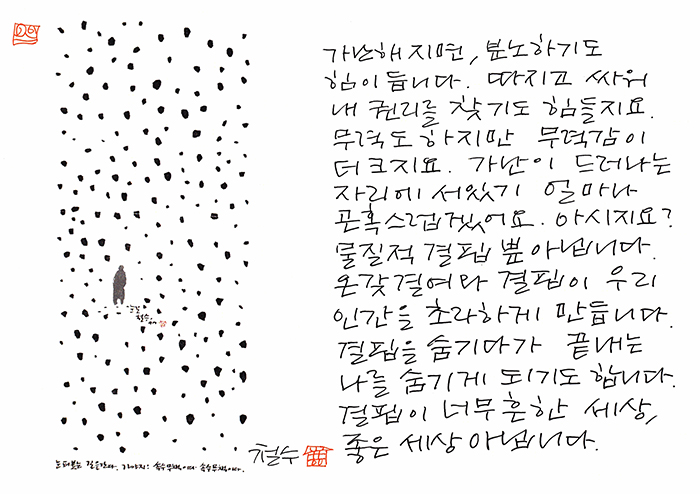 가난해지면, 분노하기도
힘이 듭니다. 따지고 싸워
내 권리를 찾기도 힘들지요.
무력도 하지만 무력감이
더 크지요. 가난이 드러나는
자리에 서있기 얼마나
곤혹스럽겠어요. 아시지요?
물질적 결핍 뿐 아닙니다.
온갖 결여와 결핍이 우리
인간을 초라하게 만듭니다.
결핍을 숨기다가 끝내는
나를 숨기게 되기도 합니다.
결핍이 너무 흔한 세상,
좋은 세상 아닙니다.
철수